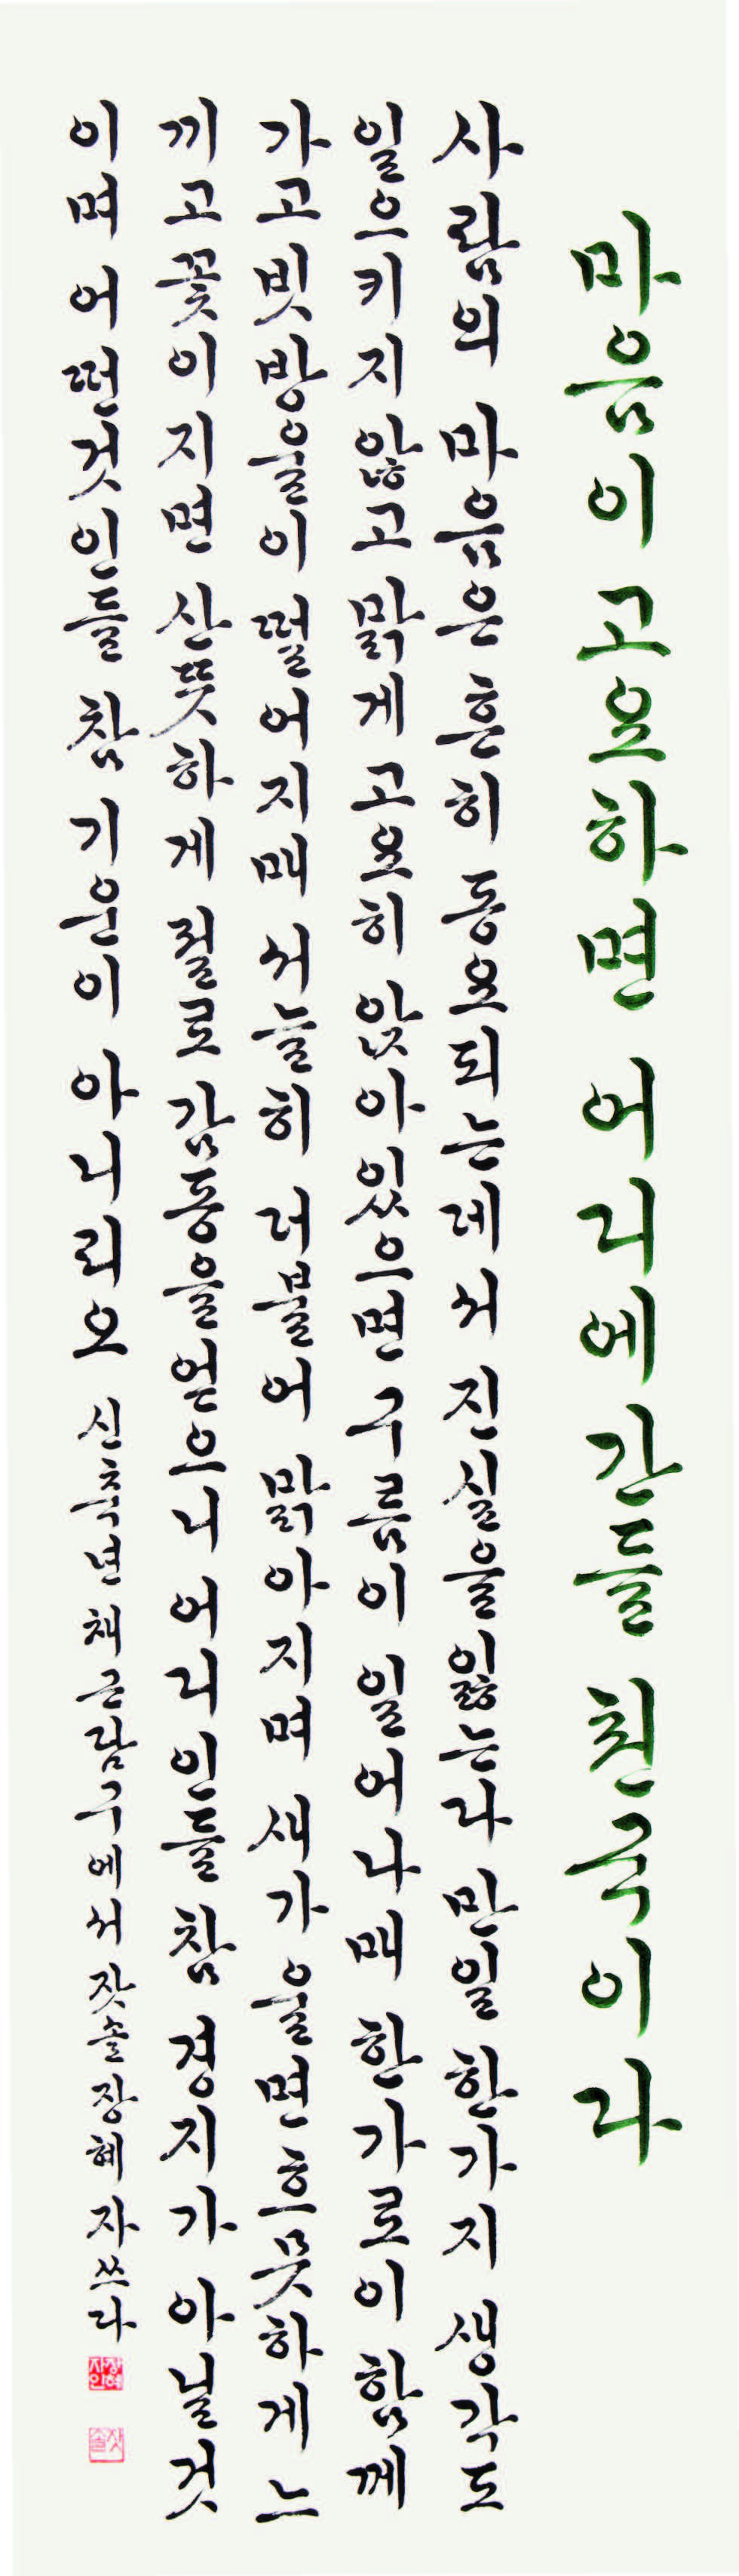 마음이 고요하면 어디에간들 천국이다
사람의 마음은 흔히 동요되는데서 진실을잃는다 만일 한가지 생각도
일으키지 않고 맑게 고요히 앉아있으면 구름이 일어나매 한가로이 함께
가고 빗방울이 떨어지매 서늘히 더불어 맑아지며 새가 울면 흐뭇하게 느
끼고 꽃이지면 산뜻하게 절로 감흥을얻으니 어디인들 참 경지가 아닐것
이며 어떤것인들 참 기운이 아니리오 신축년 채근담구에서 잣솔 장혜자쓰다
장혜자인
잣솔